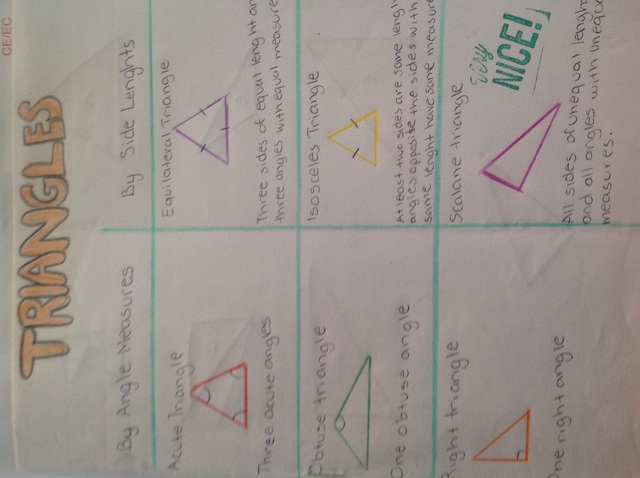 CE/EC
TRIANGLES
By Angle Measures
By Side Lenghts
Acute Triangle
Equilateral Triangle
Three acute angles
Three sides of equal lenght an
three angles with equal measure
Obtuse triangle
Isosceles Triangle
One obtuse angle
At least two sides are same lengh
angles opposite the sides with
same lenght have same measur
Right triangle
Scalane triangle
NICE!
One right angle
All sides of unequal lengh
and all angles with unequa
measures.